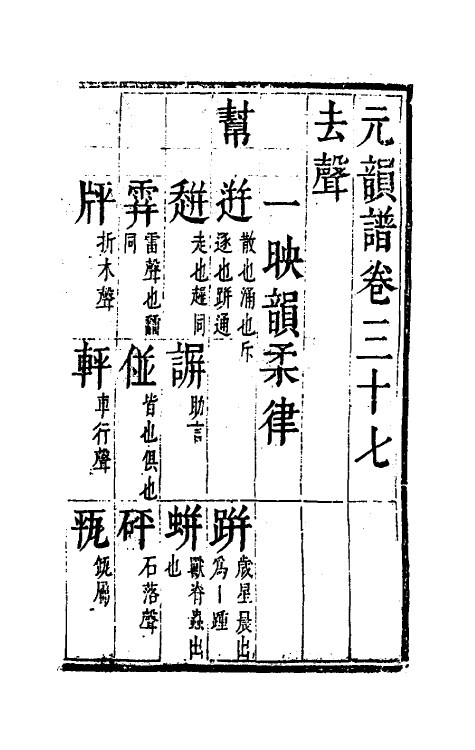 元韻譜卷三十七
去聲
一映韻柔律
幫
逬 散也涌也斥逐也跰通
跰 歲星晨出爲丨踵
趚 走也趕同
誁 助言
蛢 獸脊蟲出也
霹 雷聲也同
碰 皆也俱也
砰 石落聲
牉 折木聲
軯 車行聲
瓶 瓿屬